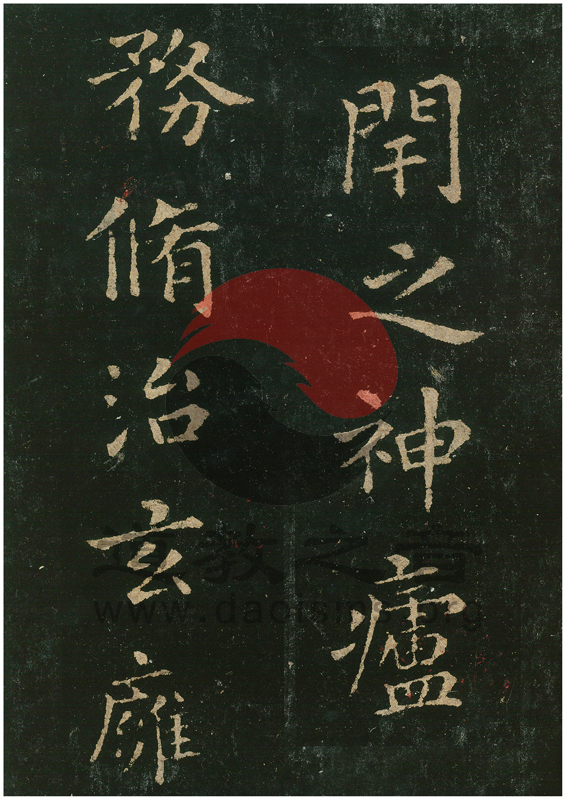 閇之神廬
務脩治玄廱
道教之音
www.daoisms.org